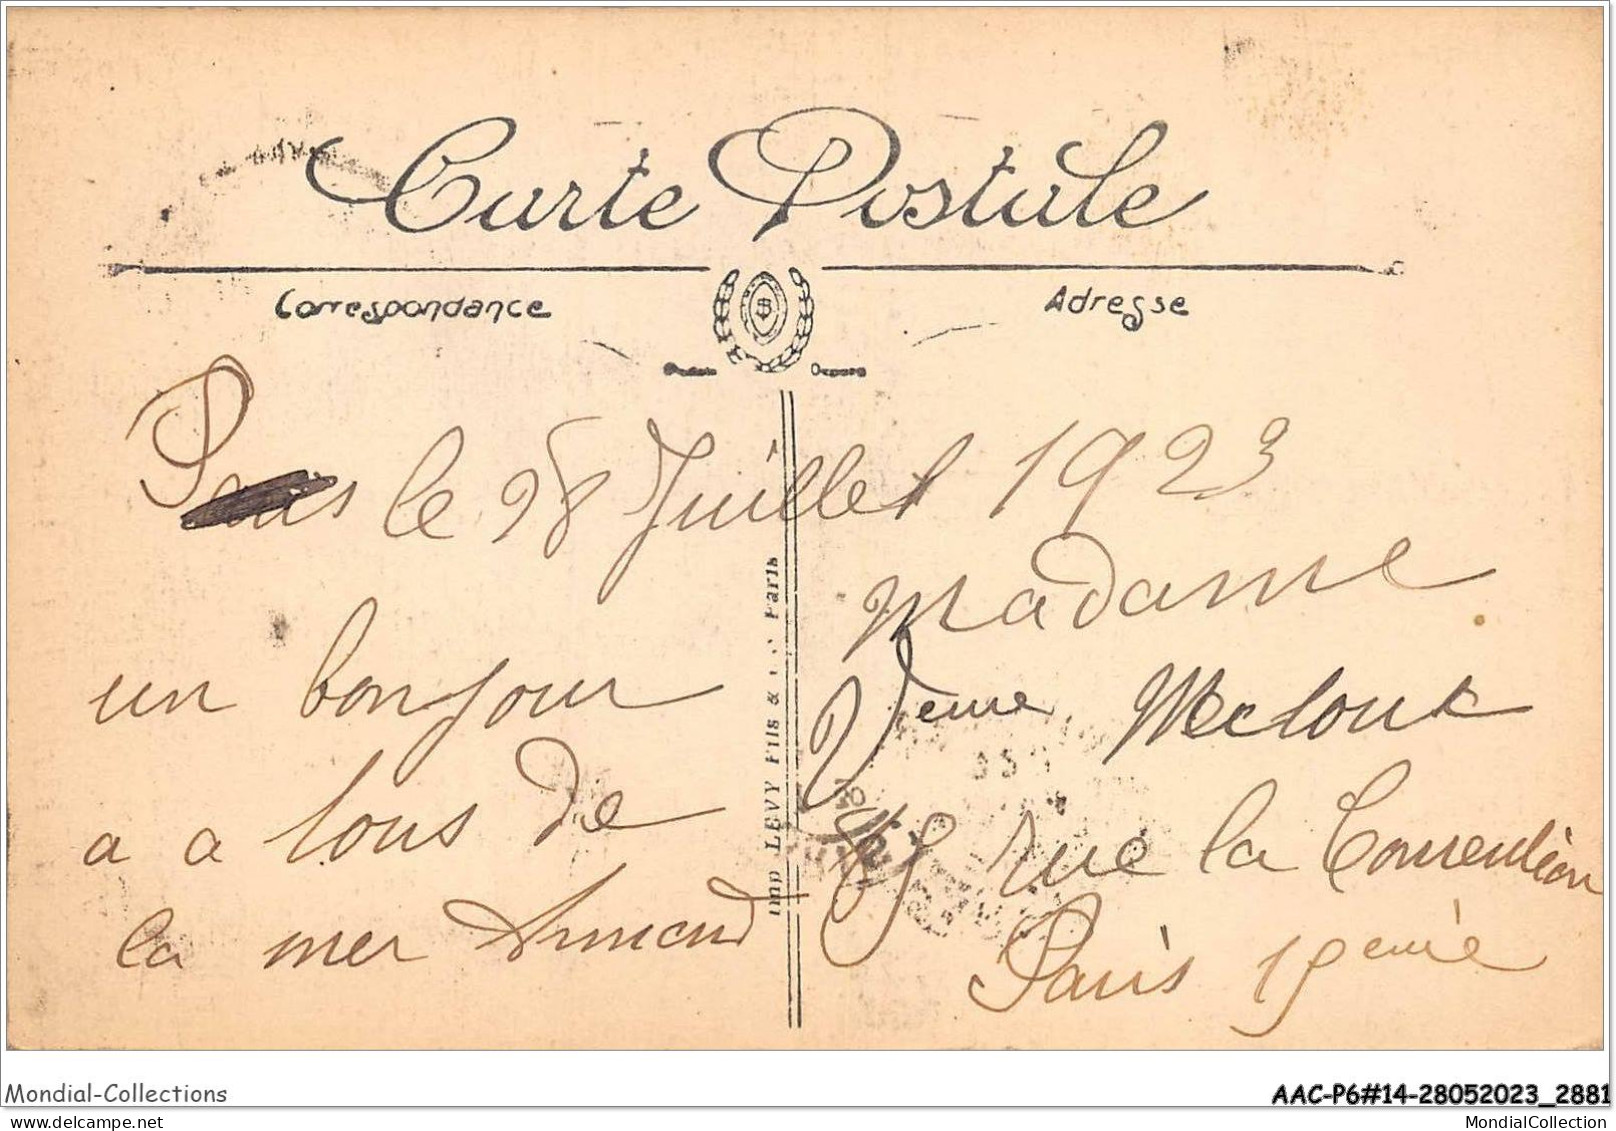 Carte Postale
Correspondance
Adresse
Paris le 28 Juillet 1923
un bonjour
a a tous de
la mer Armand
Imp LEVY Fils & Paris
Madame
Veuve
rue la Convention
Paris 15eme
Mondial-Collections
AAC-P6#14-28052023_2881
delcampe.net
MondialCollection